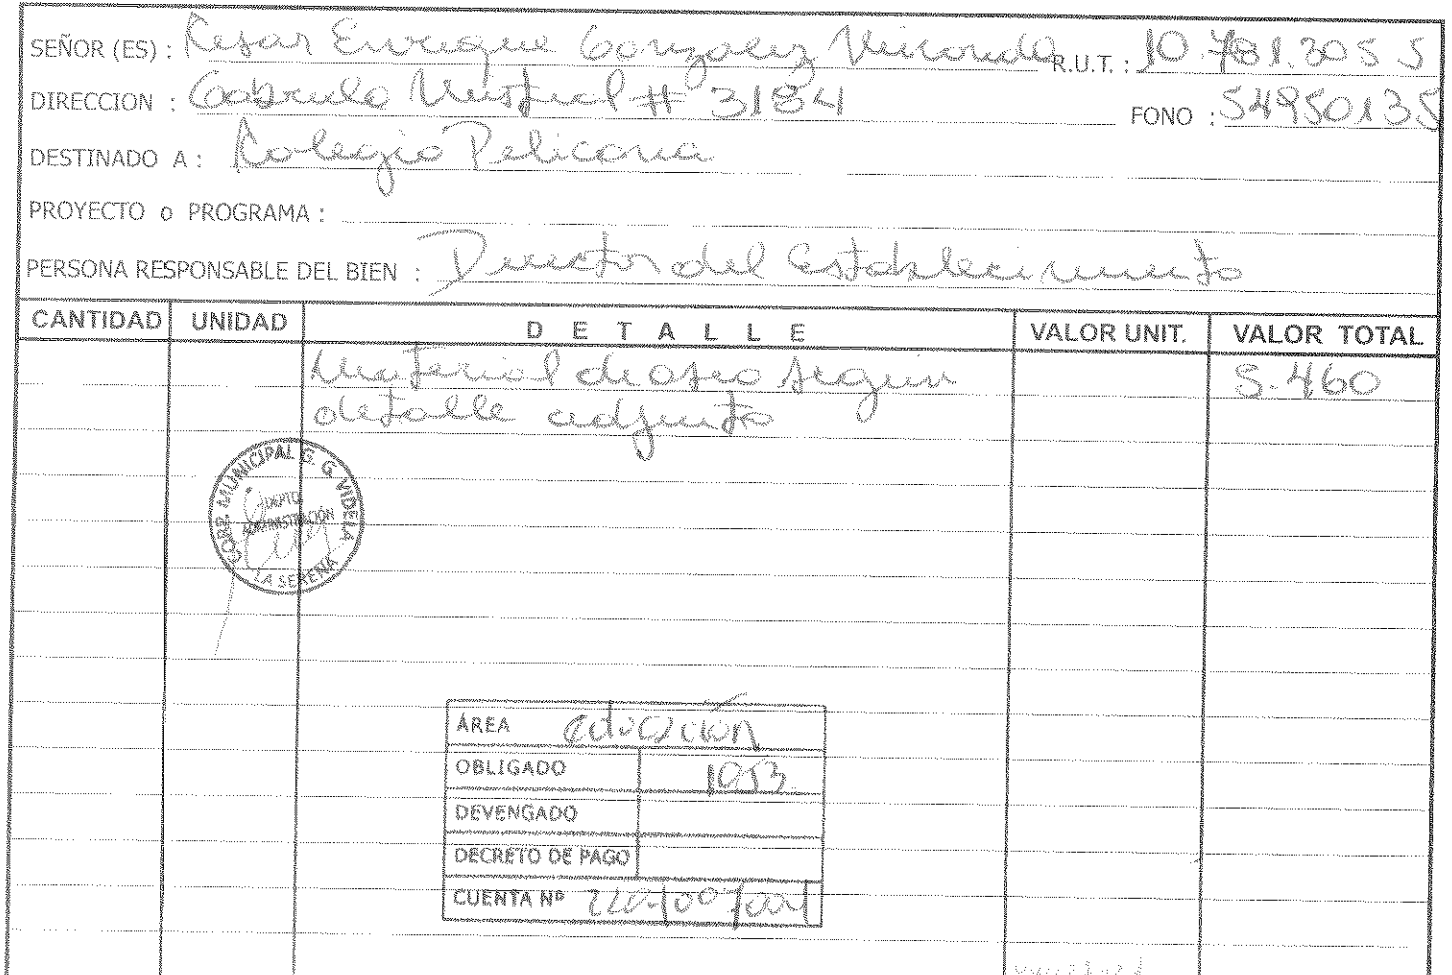 SEÑOR (ES) : Cesar Enrique Gonzalez Miranda R.U.T. : 10.781.305 5
DIRECCION : Gabriela Mistral # 3184 FONO : 54950135
DESTINADO A : Colegio Pelicana
PROYECTO o PROGRAMA :
PERSONA RESPONSABLE DEL BIEN : Director del Establecimiento
CANTIDAD UNIDAD D E T A L L E VALOR UNIT. VALOR TOTAL
Material de aseo según 5.460
detalle adjunto
CORP. MUNICIPAL G. G. VIDELA
DEPTO.
ADMINISTRACIÓN
LA SERENA
ÁREA educación
OBLIGADO 1053
DEVENGADO
DECRETO DE PAGO
CUENTA Nº